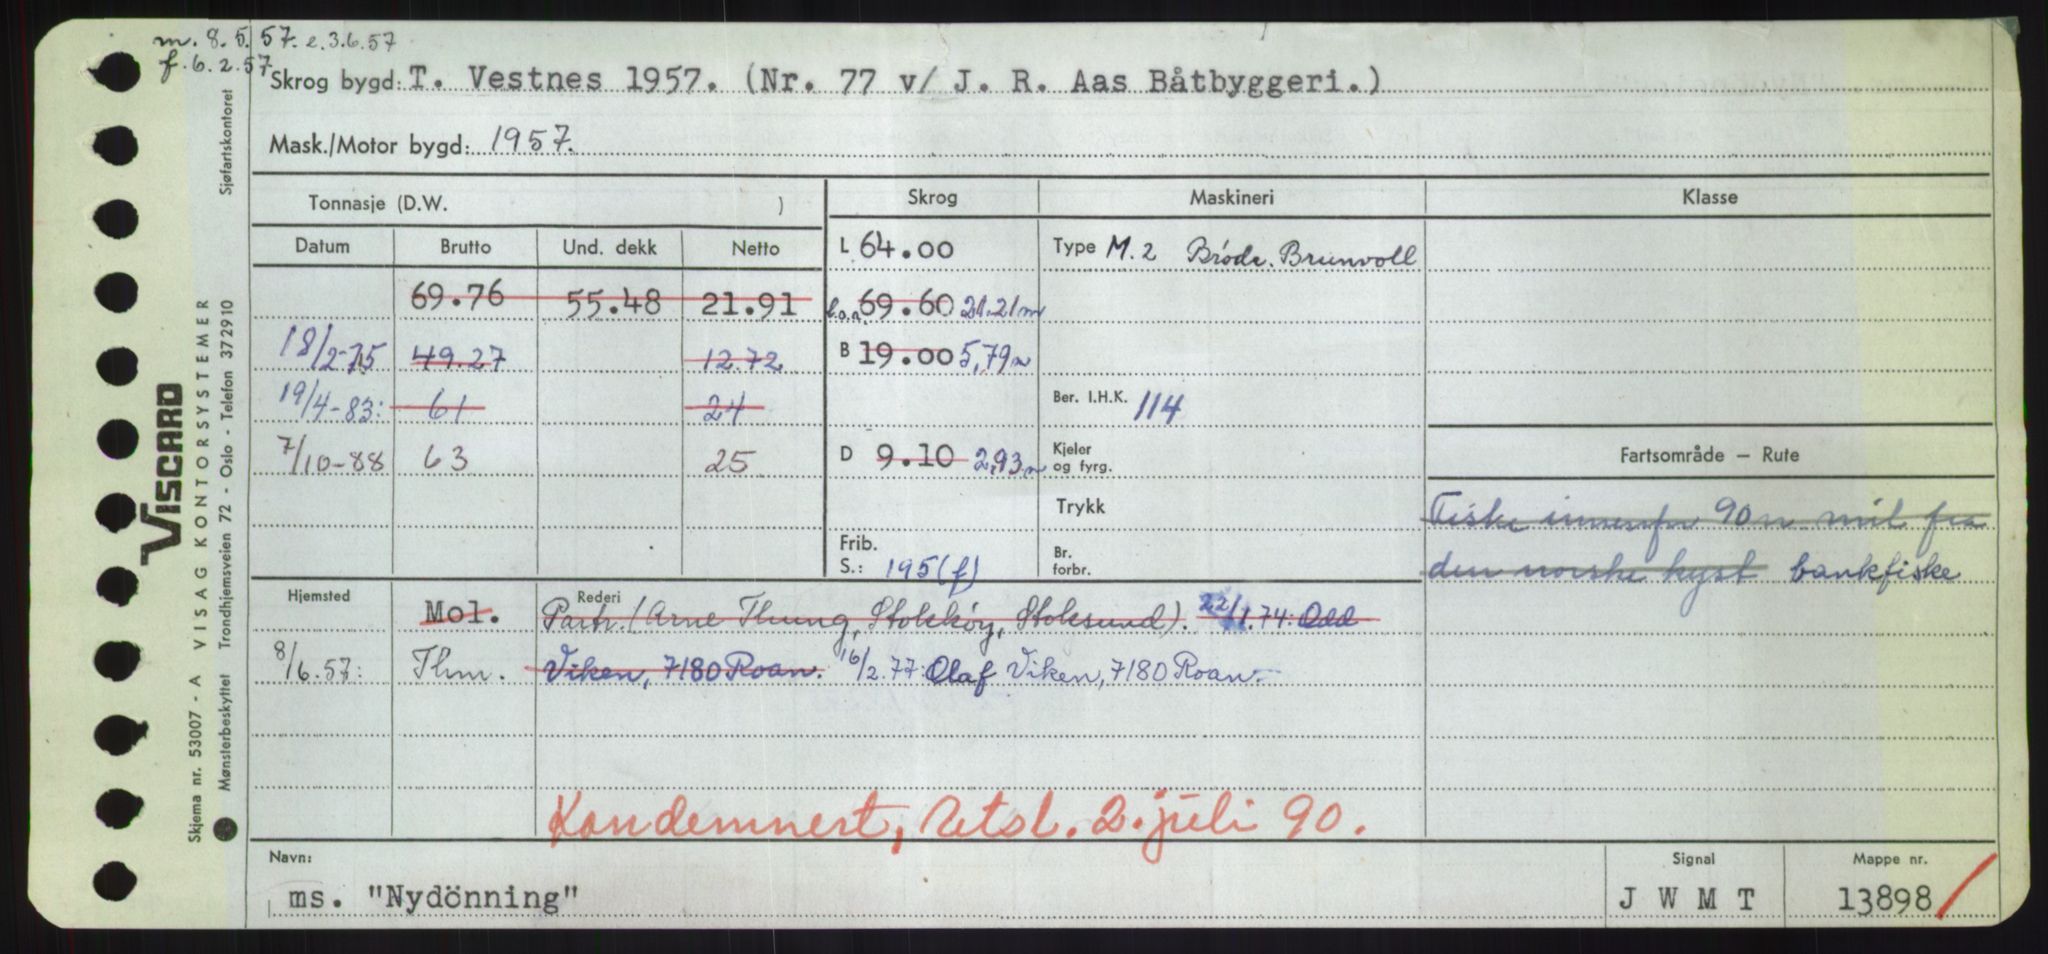 m. 8.5.57. e.3.6.57
f. 6.2.57
Skrog bygd: T. Vestnes 1957. (Nr. 77 v/ J. R. Aas Båtbyggeri.)
Mask./Motor bygd: 1957.
Tonnasje (D.W. ) Skrog Maskineri Klasse
Datum Brutto Und. dekk Netto L 64.00 Type M.2 Brødr. Brunvoll
69.76 55.48 21.91 l.o.a. 69.60 21.21 m
18/2-75 49.27 12.72 B 19.00 5,79 m
19/4-83: 61 24 Ber. I.H.K. 114
7/10-88 63 25 D 9.10 2,93 m Kjeler og fyrg. Fartsområde — Rute
Trykk Fiske innenfor 90 n mil fra
Frib. S.: 195 (f) Br. forbr. den norske kyst bankfiske
Hjemsted Mol. Rederi Partr. (Arne Thung, Stokkøy, Stoksund). 22/1.74: Odd
8/6.57: Thm. Viken, 7180 Roan. 16/2.77: Olaf Viken, 7180 Roan.
Kondemnert, Utsl. 2. juli 90.
Navn: Signal Mappe nr.
ms. "Nydönning" J W M T 13898
VISCARD
Skjema nr. 53007 - A VISAG KONTORSYSTEMER
Mønsterbeskyttet Trondhjemsveien 72 - Oslo - Telefon 372910 Sjøfartskontoret